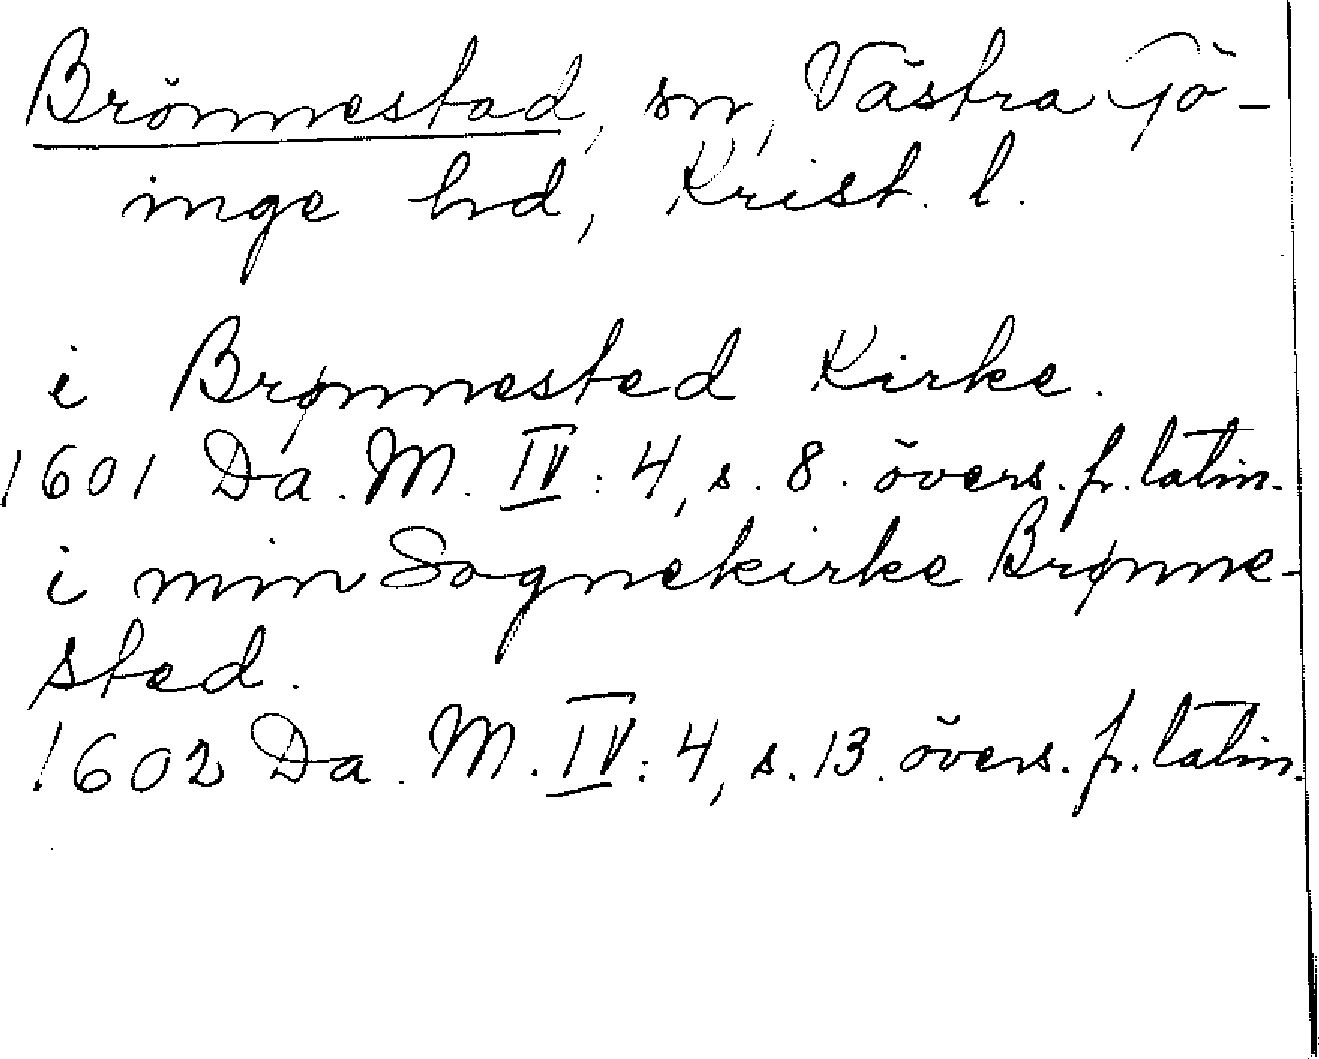 Brönnestad, sn, Västra Gö-
inge hd, Krist. l.
i Brønnested Kirke.
1601 Da. M. IV: 4, s. 8. övers. fr. latin.
i min Sognekirke Brønne-
sted.
1602 Da. M. IV: 4, s. 13. övers. fr. latin.